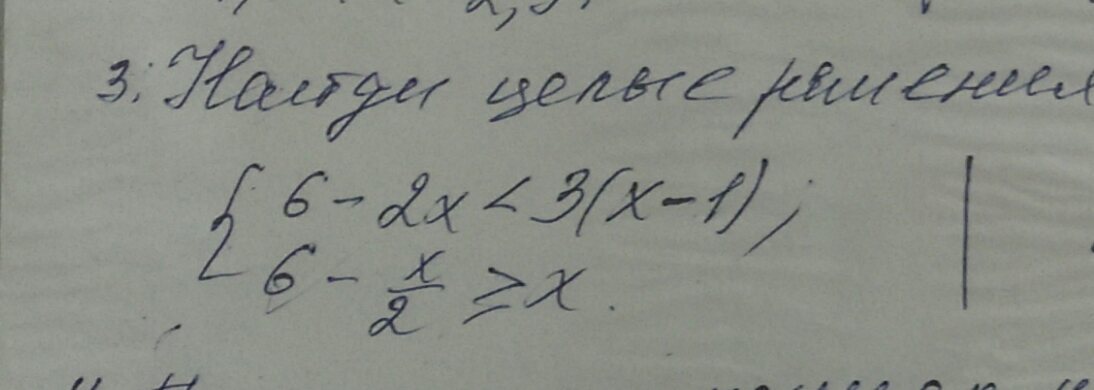 3. Найди целые решения
{ 6 - 2x < 3(x-1);
6 - x/2 ≥ x.